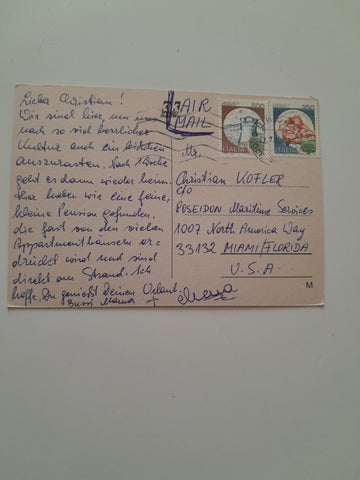 Lieber Christian!
Wir sind hier, um uns
nach so viel herrlicher
Kultur auch ein bißchen
auszurasten. Nach 1 Woche
geht es dann wieder heim.
Hier haben wir eine feine,
kleine Pension gefunden,
die fast von den vielen
Appartmenthäusern er-
drückt wird und sind
direkt am Strand. Ich
hoffe, Du genießt Deinen Urlaub.
Bussi Mama +
AIR
MAIL
ITALIA
ITALIA
Mr.
Christian KOFLER
c/o
POSEIDON Maritime Services
1007 North America Way
33132 MIAMI/FLORIDA
U.S.A.
M